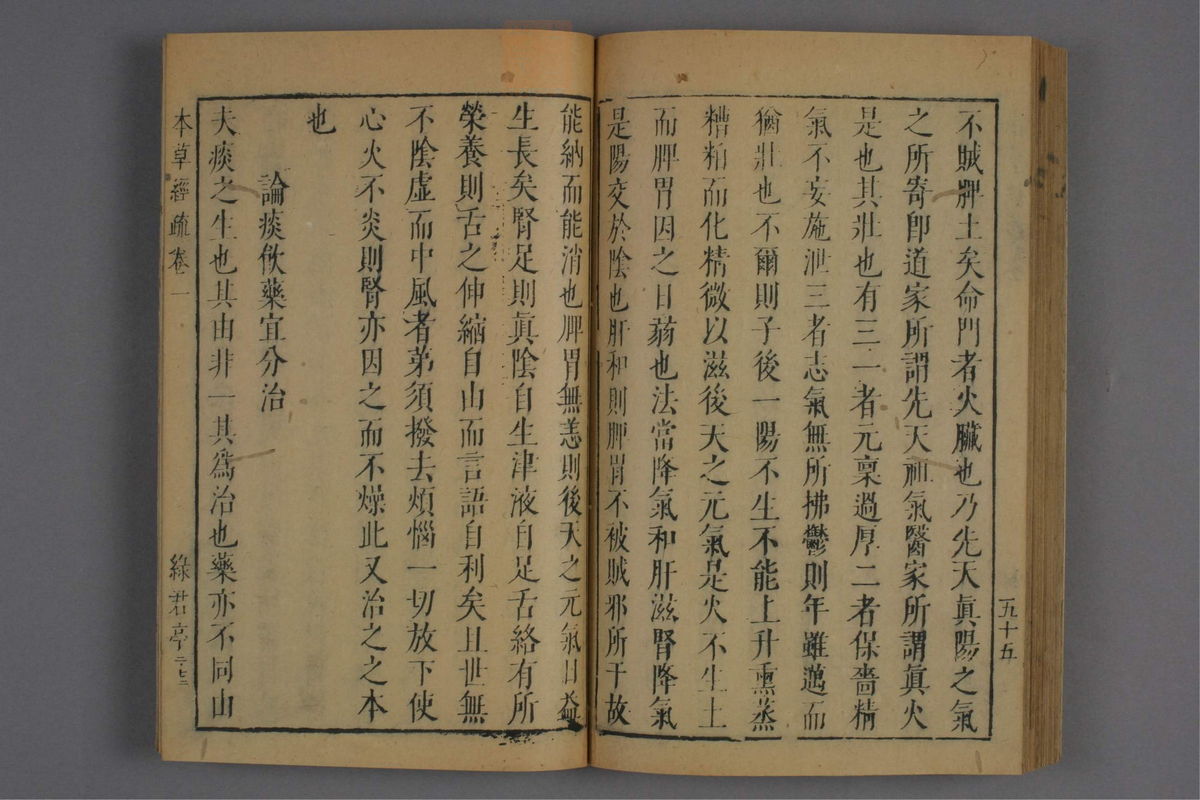 不賊脾土矣命門者火臟也乃先天眞陽之氣
之所寄卽道家所謂先天祖氣醫家所謂眞火
是也其壯也有三一者元稟過厚二者保嗇精
氣不妄施泄三者志氣無所拂鬱則年雖邁而
猶壯也不爾則子後一陽不生不能上升熏蒸
糟粕而化精微以滋後天之元氣是火不生土
而脾胃因之日蒻也法當降氣和肝滋腎降氣
是陽交於陰也肝和則脾胃不被賊邪所干故
五十五
能納而能消也脾胃無恙則後天之元氣日益
生長矣腎足則眞陰自生津液自足舌絡有所
榮養則舌之伸縮自由而言語自利矣且世無
不陰虛而中風者苐須撥去煩惱一切放下使
心火不炎則腎亦因之而不燥此又治之之本
也
論痰飲藥宜分治
夫痰之生也其由非一其爲治也藥亦不同由
本草經疏卷一
綠君亭